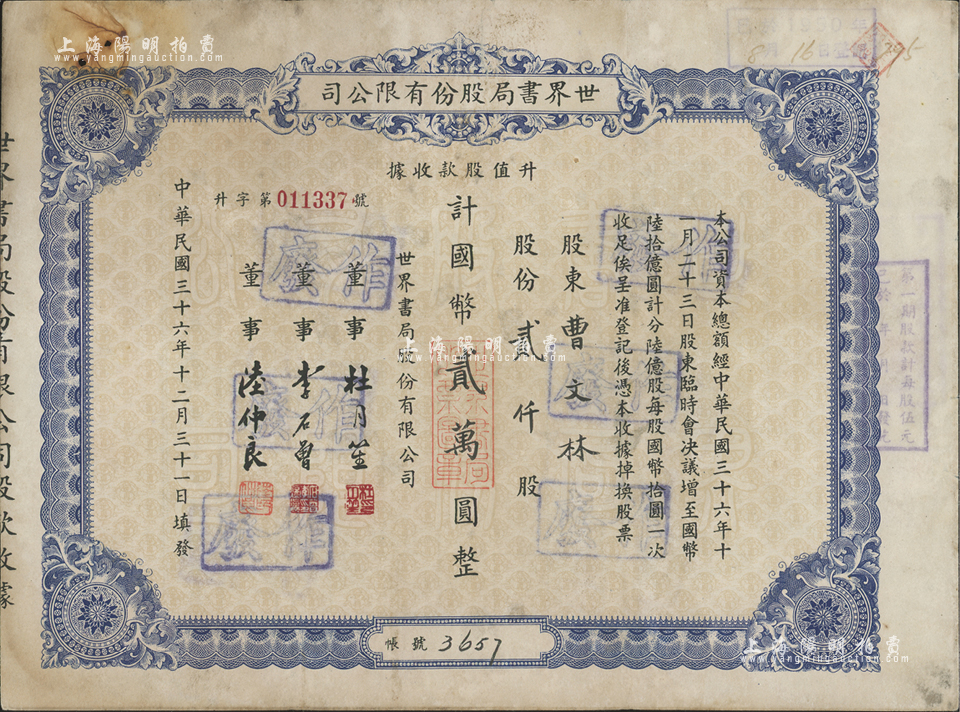 世界書局股份有限公司
升值股款收據
升字第011337號
本公司資本總額經中華民國三十六年十
一月二十三日股東臨時會決議增至國幣
陸拾億圓計分陸億股每股國幣拾圓一次
收足俟呈准登記後憑本收據掉換股票
股東 曹文林
股份 貳仟股
計國幣貳萬圓整
世界書局股份有限公司
董事 杜月笙
董事 李石曾
董事 陸仲良
中華民國三十六年十二月三十一日填發
帳號 3657
世界書局股份有限公司股款收據
作廢
作廢
作廢
作廢
作廢
作廢
8 16日 295
上海陽明拍賣
www.yangmingauction.com
上海陽明拍賣
www.yangmingauction.com
上海陽明拍賣
www.yangmingauction.com
上海陽明拍賣
www.yangmingauction.com
上海陽明拍賣
www.yangmingauction.com